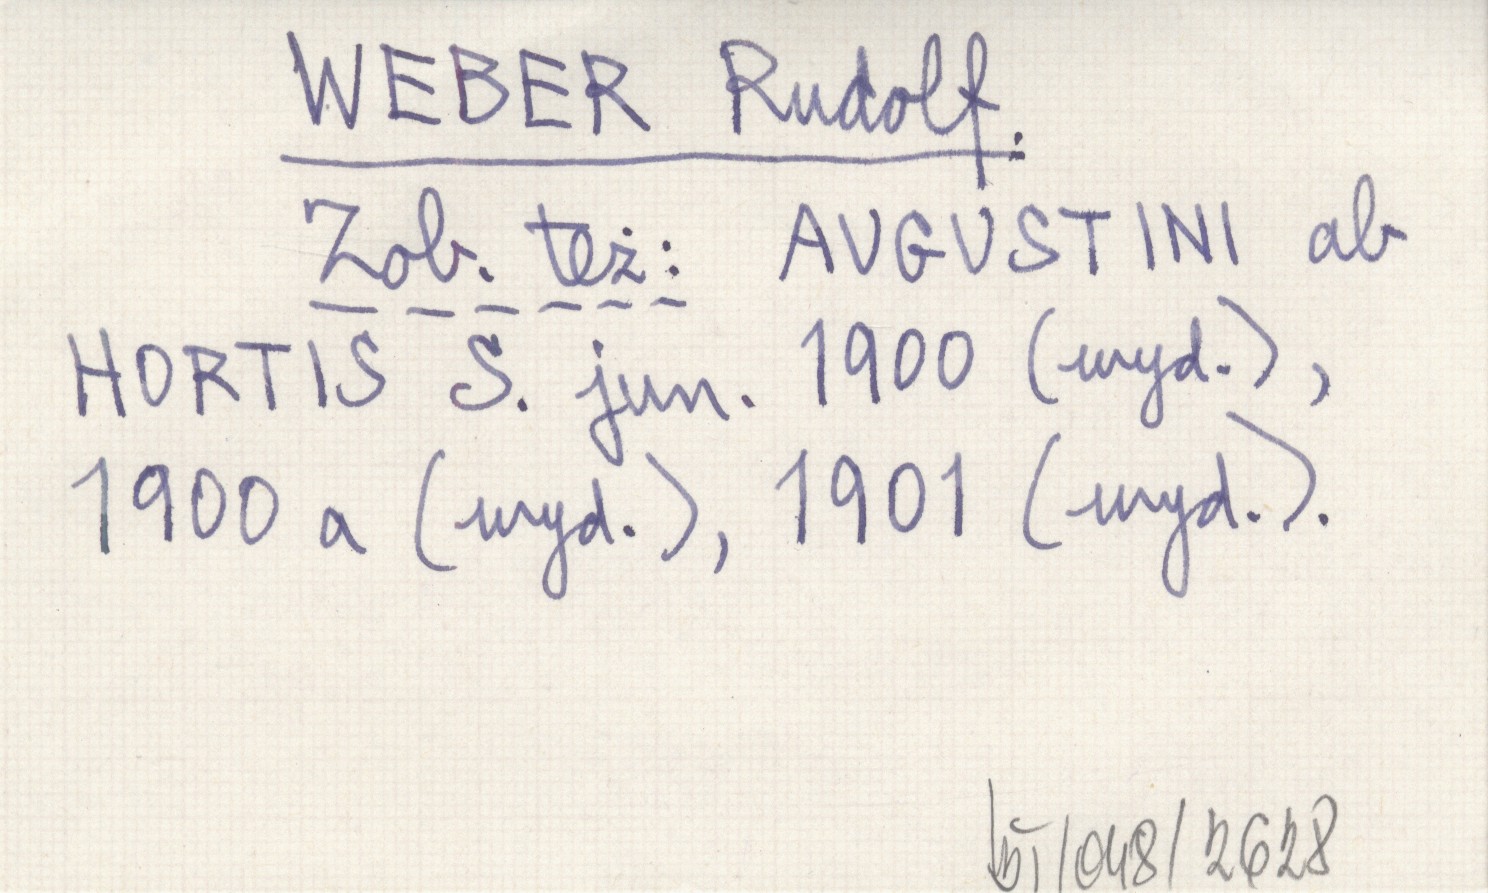 WEBER Rudolf.
Zob. też: AUGUSTINI ab
HORTIS S. jun. 1900 (wyd.),
1900 a (wyd.), 1901 (wyd.).
/048/2628